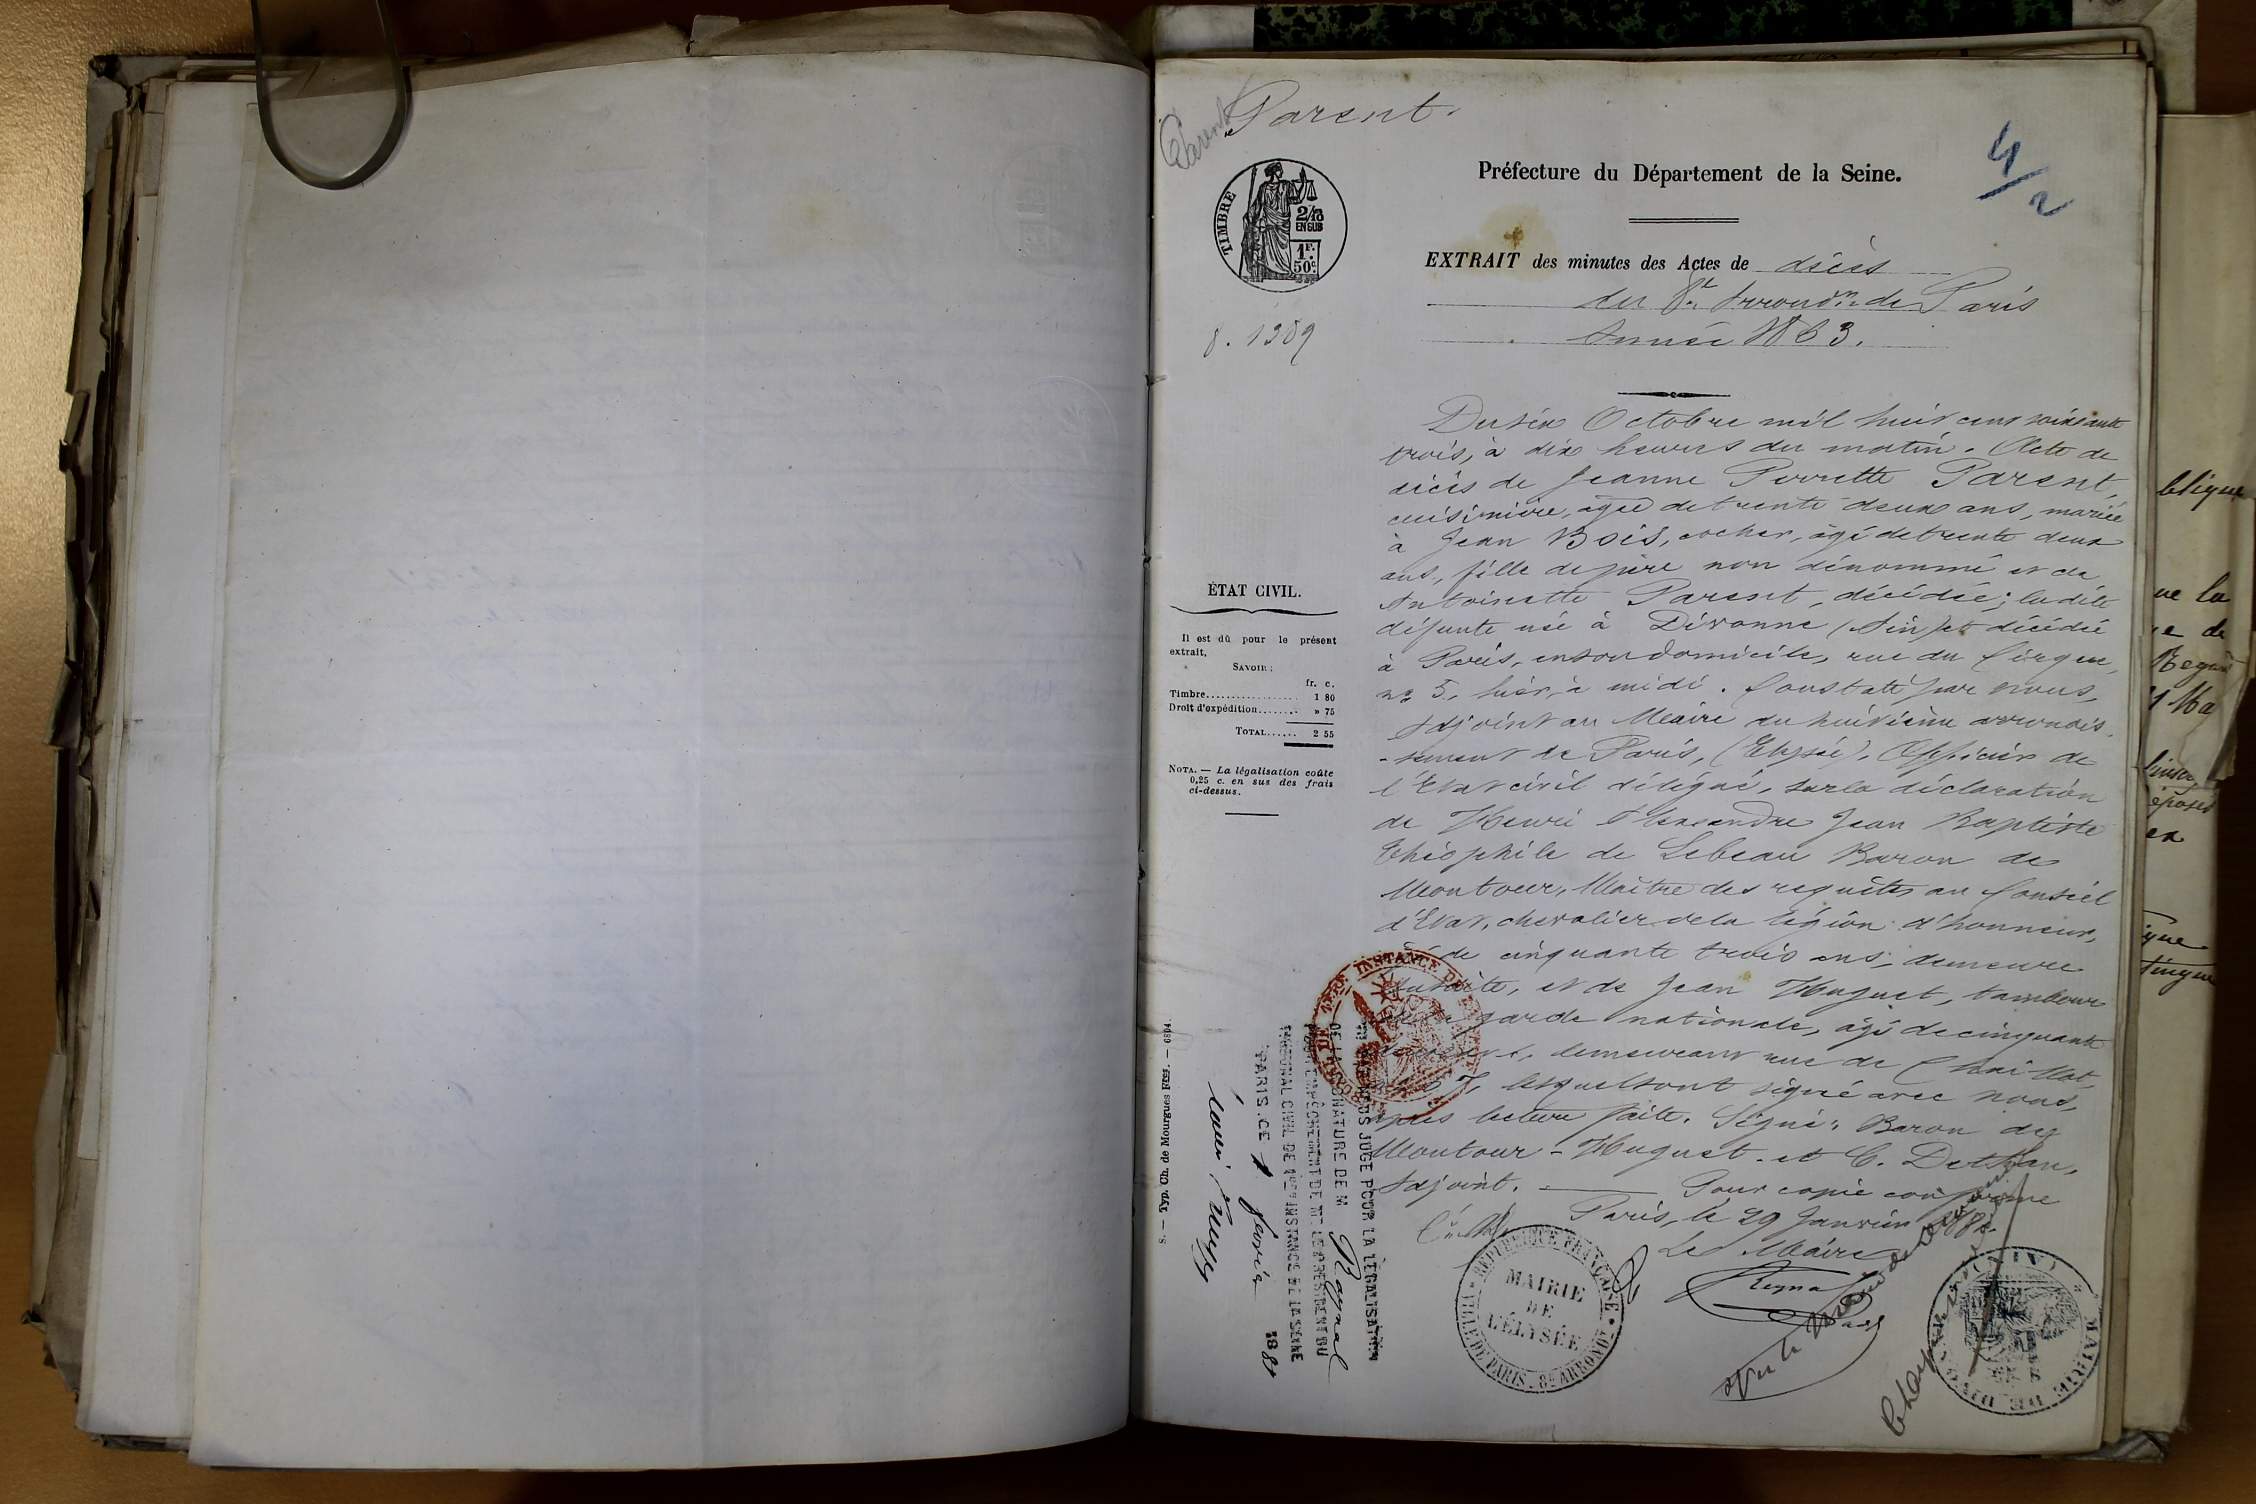 Parent.
Parent
4/2
TIMBRE
2/10
EN SUS
1F.
50c
8. 1389
Préfecture du Département de la Seine.
EXTRAIT des minutes des Actes de décès
du 8e Arrondn de Paris
Année 1863.
Du six Octobre mil huit cent soixante
trois, à dix heures du matin. Acte de
décès de Jeanne Perrette Parent,
cuisinière, agée de trente deux ans, mariée
à Jean Bois, cocher, âgé de trente deux
ans, fille de père non dénommé et de
Antoinette Parent, décédée; la dite
défunte née à Divonne (Ain) et décédée
à Paris, en son domicile, rue du Cirque,
no 5, hier, à midi. Constaté par nous,
Adjoint au Maire du huitième arrondis-
-sement de Paris, (Elysée). Officier de
l'Etat civil délégué, sur la déclaration
de Henri Alexandre Jean Baptiste
Théophile de Lebeau Baron de
Montour, Maître des requêtes au Conseil
d'Etat, chevalier de la légion d'honneur,
de cinquante trois ans, demeure
susdite, et de Jean Huguet, tambour
de la garde nationale, âgé de cinquante
ans, demeurant rue de Chaillot,
7, lesquels ont signé avec nous,
après lecture faite. Signé: Baron de
Montour - Huguet - et C. Dethan,
Adjoint. Pour copie conforme
Paris, le 29 Janvier 188
Le Maire
ÉTAT CIVIL.
Il est dû pour le présent
extrait,
SAVOIR:
fr. c.
Timbre 1 80
Droit d'expédition » 75
TOTAL 2 55
NOTA. — La légalisation coûte
0,25 c. en sus des frais
ci-dessus.
S. — Typ. Ch. de Mourgues Frès. — 6804.
JUGE POUR LA LÉGALISATION
DE LA SIGNATURE DE M Raynal
EMPÊCHEMENT DE Mr LE PRÉSIDENT DU
TRIBUNAL CIVIL DE 1re INSTANCE DE LA SEINE
PARIS. CE 1 188
INSTANCE DE
RÉPUBLIQUE FRANÇAISE
MAIRIE
DE
L'ÉLYSÉE
VILLE DE PARIS. 8e ARRONDt
MAIRIE DE DIVO
(AIN)
blique
ue la
e de